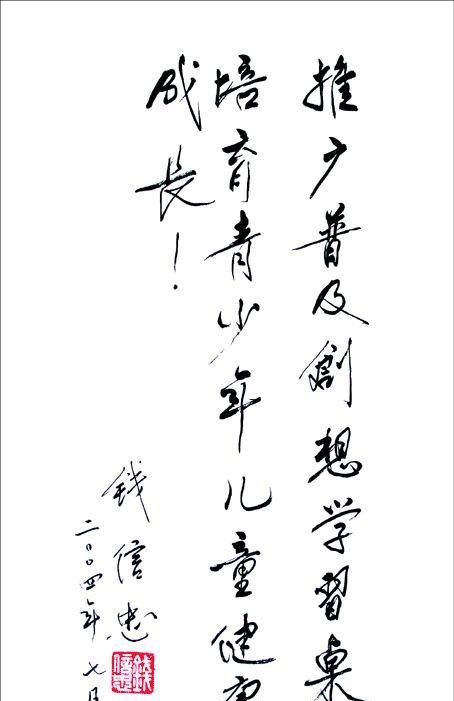 推广普及創想学習桌
培育青少年儿童健康
成長！
錢信忠
二〇〇四年七月
錢信忠